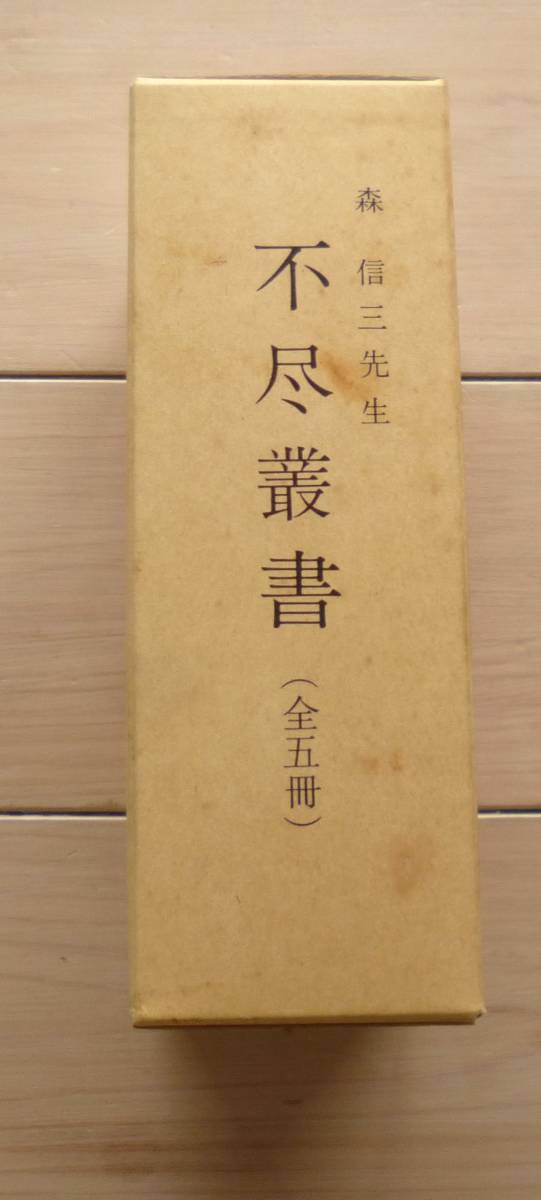 森信三先生
不尽叢書(全五冊)